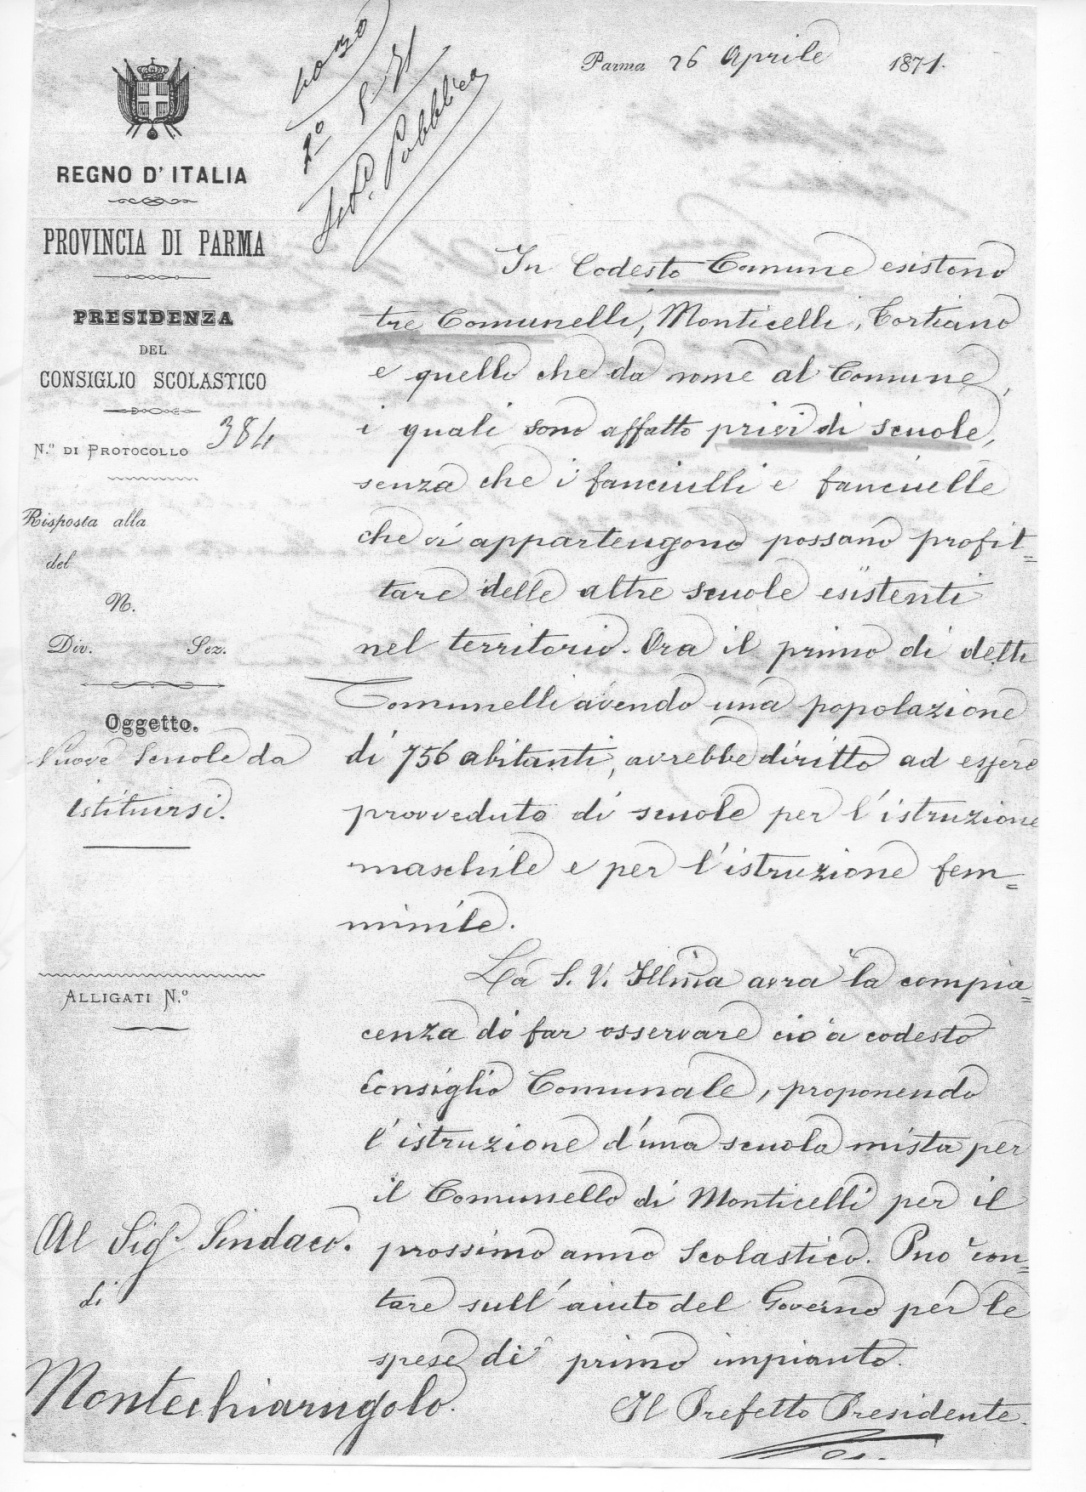 Parma 26 Aprile 1871.
2º
Pubblica
REGNO D'ITALIA
PROVINCIA DI PARMA
PRESIDENZA
DEL
CONSIGLIO SCOLASTICO
N.º DI PROTOCOLLO 384
Risposta alla
del
N.
Div. Sez.
Oggetto.
Nuove Scuole da
istituirsi.
ALLIGATI N.º
Al Sig.r Sindaco.
di
Montechiarugolo.
In Codesto Comune esistono
tre Comunelli, Monticelli, Tortiano
e quello che da nome al Comune,
i quali sono affatto privi di scuole,
senza che i fanciulli e fanciulle
che vi appartengono possano profit=
tare delle altre scuole esistenti
nel territorio. Ora il primo di detti
Comunelli avendo una popolazione
di 756 abitanti, avrebbe diritto ad essere
provveduto di scuole per l'istruzione
maschile e per l'istruzione fem=
minile.
La S. V. Illma avrà la compia=
cenza di far osservare ciò a codesto
Consiglio Comunale, proponendo
l'istruzione d'una scuola mista per
il Comunello di Monticelli per il
prossimo anno Scolastico. Può con=
tare sull'aiuto del Governo per le
spese di primo impianto.
Il Prefetto Presidente.